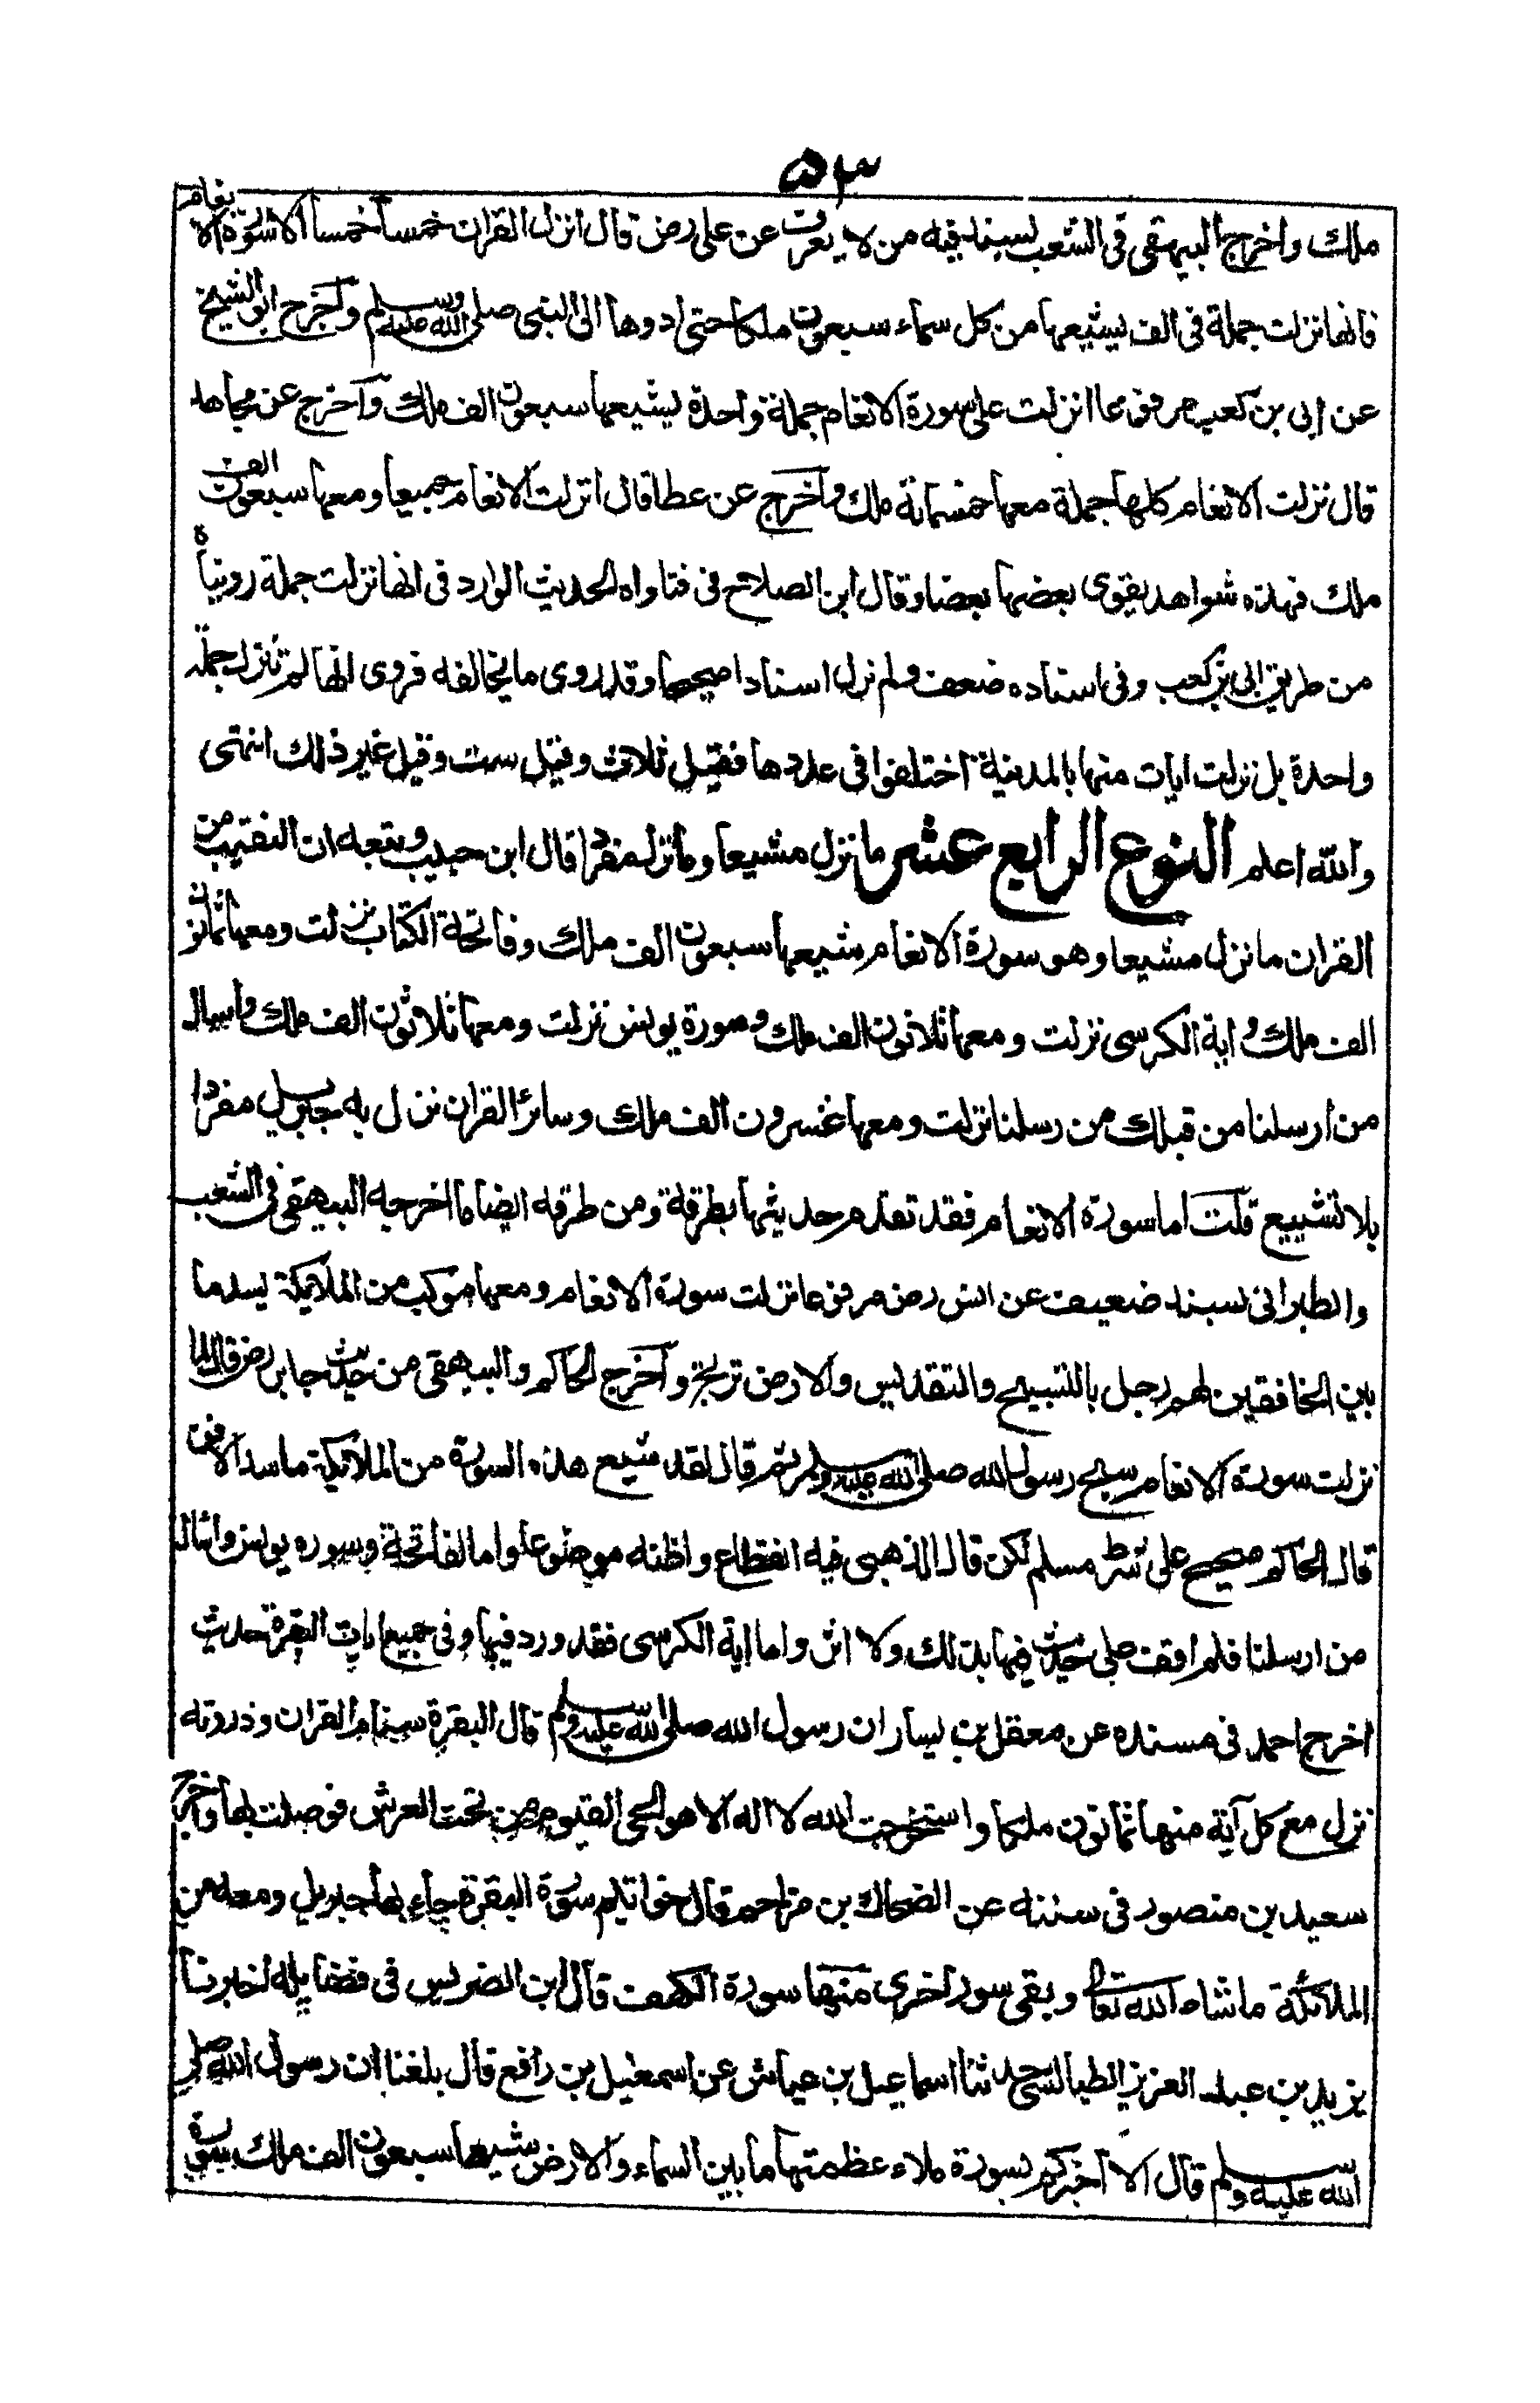 ۵۳
ملك واخرج البيهقى فى الشعب بسند فيه من لا يعرف عن على رض قال انزل القران خمسا خمسا الا سورة الانعام
فانها نزلت جملة فى الف يشيعها من كل سماء سبعون ملكا حتى ادوها الى النبى صلى الله عليه وسلم واخرج ابو الشيخ
عن ابى بن كعب مرفوعا انزلت على سورة الانعام جملة واحدة يشيعها سبعون الف ملك واخرج عن مجاهد
قال نزلت الانعام كلها جملة معها خمسمائة ملك واخرج عن عطا قال انزلت الانعام جميعا ومعها سبعون الف
ملك فهذه شواهد يقوى بعضها بعضا وقال ابن الصلاح فى فتاواه الحديث الوارد فى انها نزلت جملة رويناه
من طريق ابى بن كعب وفى اسناده ضعف ولم نرل اسنادا صحيحا وقد روى ما يخالفه فروى انها لم تنزل جملة
واحدة بل نزلت ايات منها بالمدينة اختلفوا فى عددها فقيل ثلاث وقيل ست وقيل غير ذلك انتهى
والله اعلم النوع الرابع عشر ما نزل مشيعا وما نزل مفردا قال ابن حبيب وتبعه ان النقيب من
القران ما نزل مشيعا وهو سورة الانعام شيعها سبعون الف ملك وفاتحة الكتاب نزلت ومعها ثمانون
الف ملك واية الكرسى نزلت ومعها ثلاثون الف ملك وسورة يونس نزلت ومعها ثلاثون الف ملك واسال
من ارسلنا من قبلك من رسلنا نزلت ومعها عشرون الف ملك وسائر القران نزل به جبريل مفردا
بلا تشييع قلت اما سورة الانعام فقد تقدم حديثها بطرقة ومن طرقه ايضا ما اخرجه البيهقى فى الشعب
والطبرانى بسند ضعيف عن انس رض مرفوعا نزلت سورة الانعام ومعها موكب من الملائكة يسد ما
بين الخافقين لهم زجل بالتسبيح والتقديس والارض ترتج واخرج الحاكم والبيهقى من حديث جابر رض قال لما
نزلت سورة الانعام سبح رسول الله صلى الله عليه وسلم ثم قال لقد شيع هذه السورة من الملائكة ما سد الافق
قال الحاكم صحيح على شرط مسلم لكن قال الذهبى فيه انقطاع واظنه موضوعا واما الفاتحة وسوره يونس واسال
من ارسلنا فلم اقف على حديث فيها بذلك ولا اثر واما اية الكرسى فقد ورد فيها وفى جميع ايات البقرة حديث
اخرج احمد فى مسنده عن معقل بن يسار ان رسول الله صلى الله عليه وسلم قال البقرة سنام القران وذروته
نزل مع كل آية منها ثمانون ملكا واستخرجت الله لا اله الا هو الحى القيوم من تحت العرش فوصلت بها واخرج
سعيد بن منصور فى سننه عن الضحاك بن مزاحم قال خواتيم سورة البقرة جاء بها جبريل ومعه من
الملائكة ما شاء الله تعالى وبقى سور اخرى منها سورة الكهف قال ابن الضريس فى فضايله اخبرنا
يزيد بن عبد العزيز الطيالسى حدثنا اسماعيل بن عياش عن اسمعيل بن رافع قال بلغنا ان رسول الله صلى
الله عليه وسلم قال الا اخبركم بسورة ملاء عظمتها ما بين السماء والارض شيعها سبعون الف ملك سورة